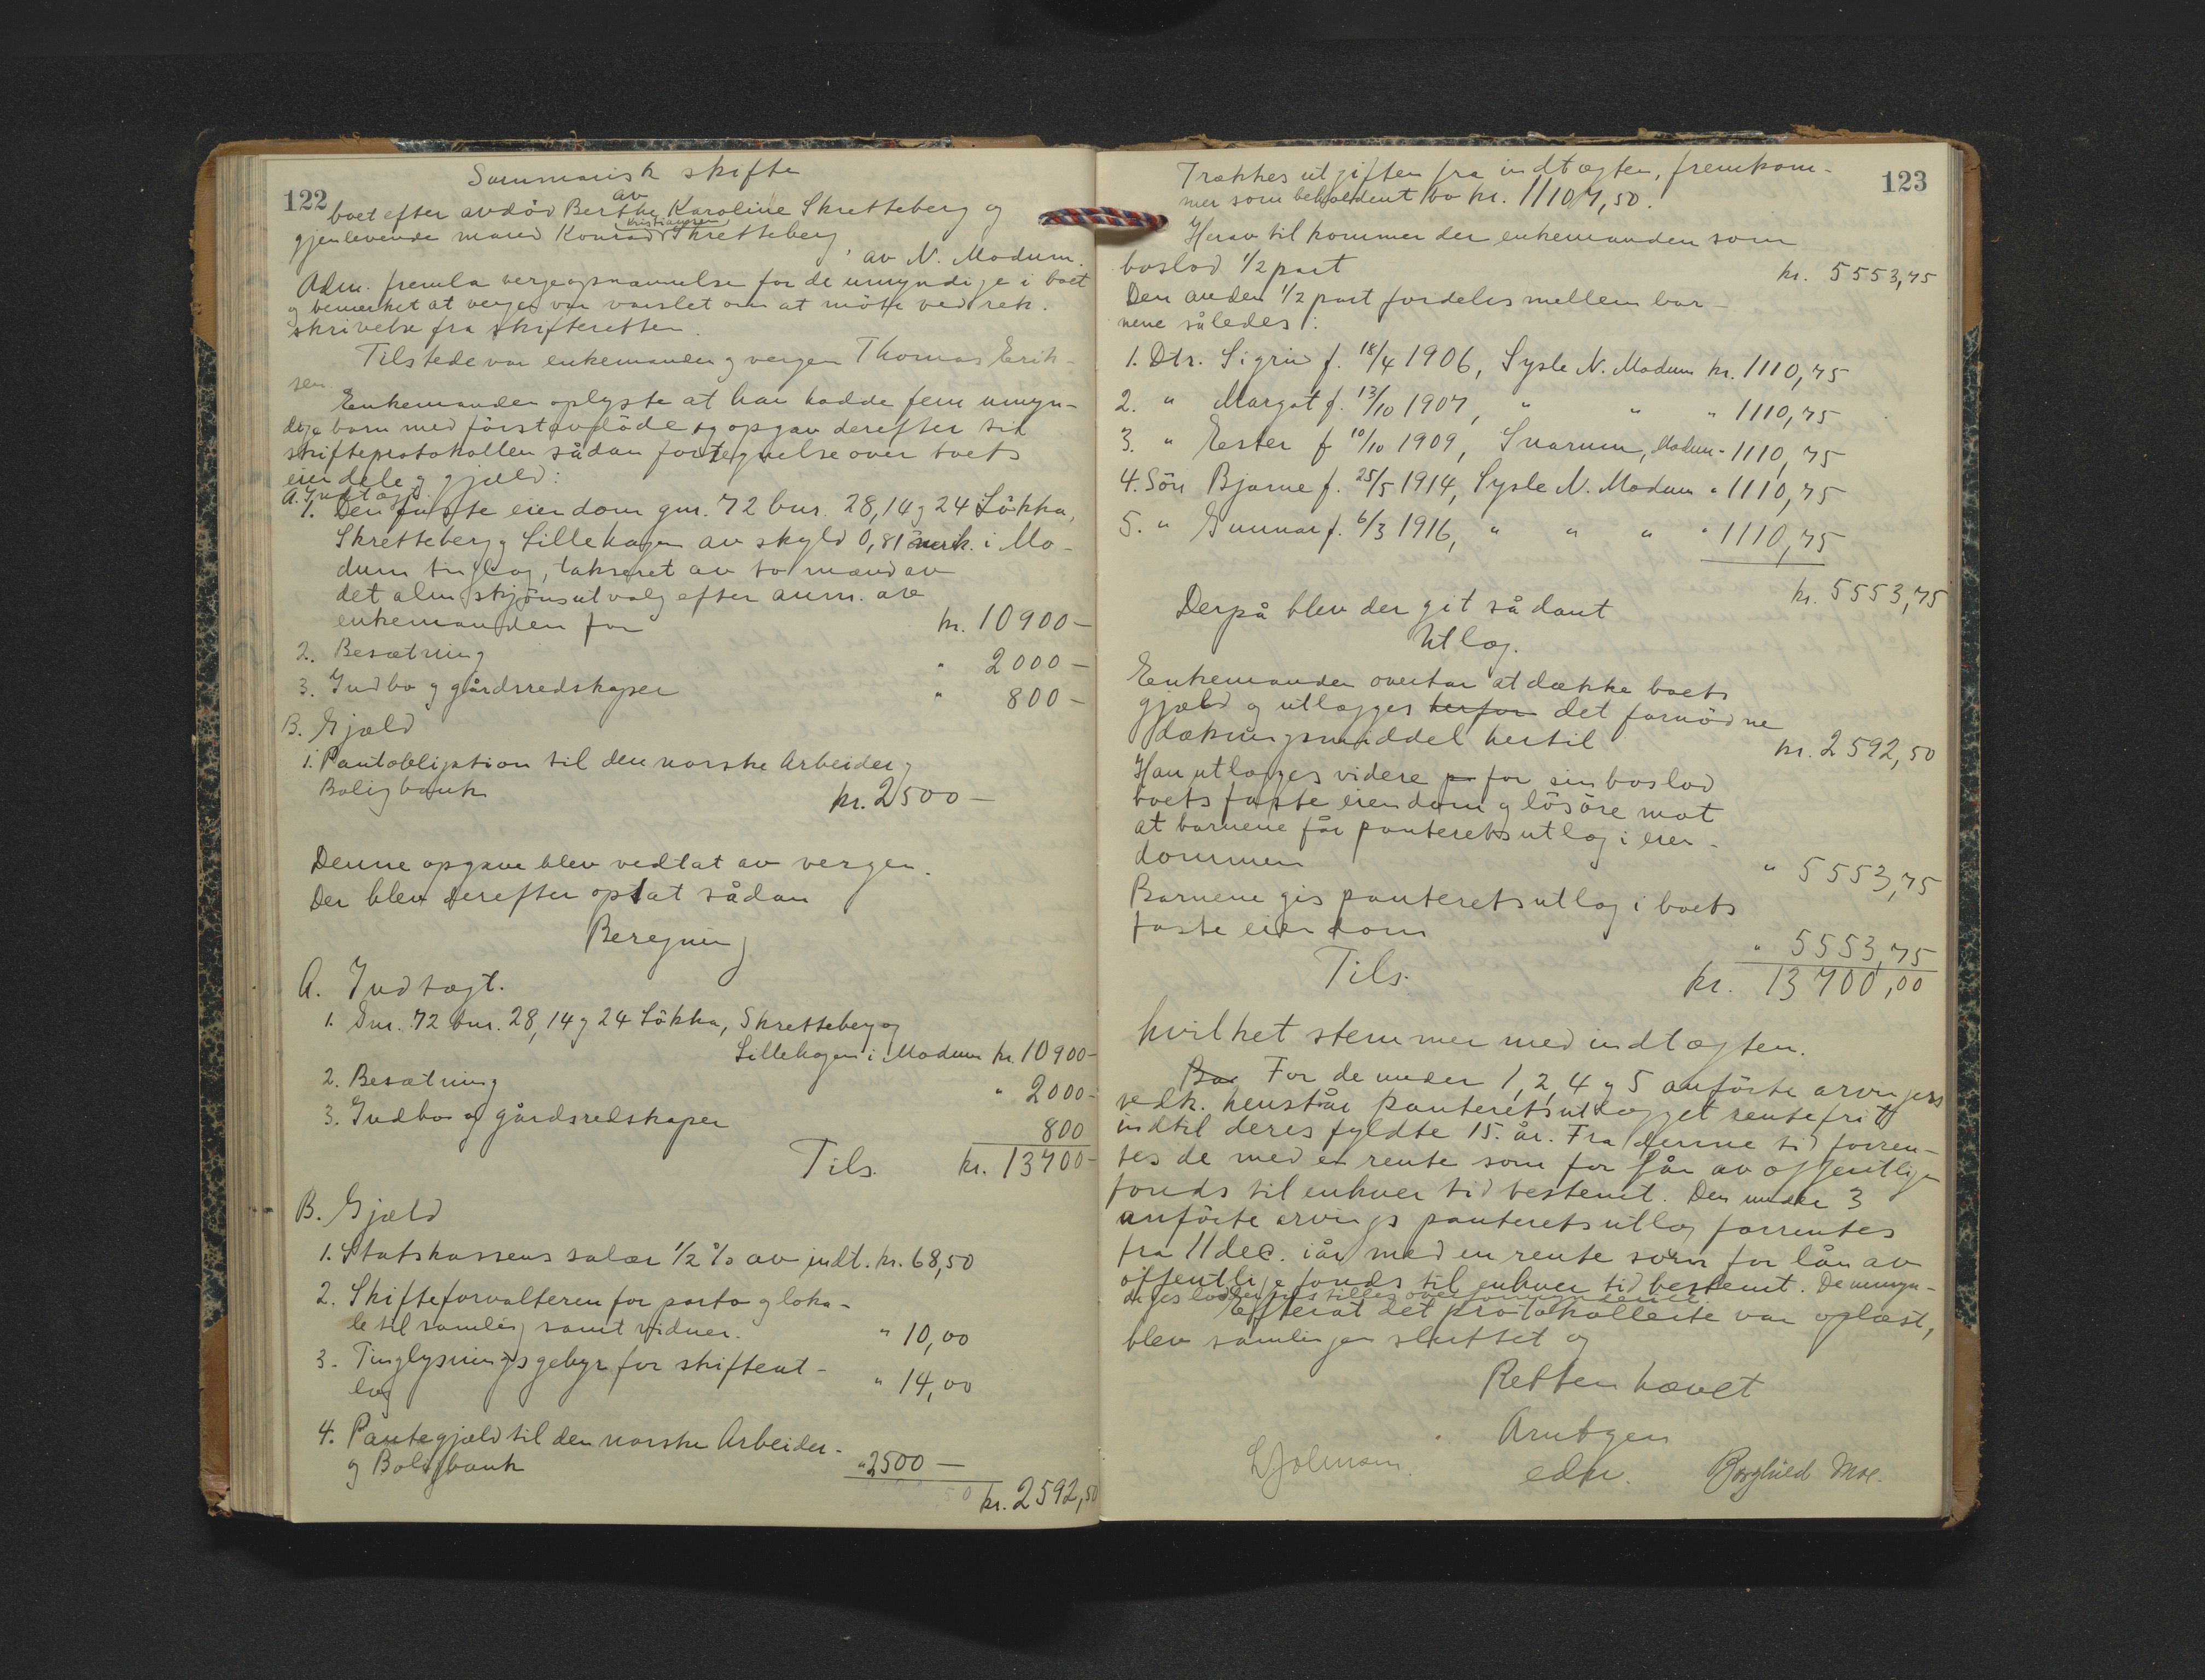 122
Summarisk skifte
av
boet efter avdöd Berthe Karoline Skretteberg og
Kristiansen
gjenlevende mand Konrad Skretteberg
av N. Modum.
Adm. fremla vergeopnævnelse for de umyndige i boet
og bemerket at vergen var varslet om at möte ved rek.
skrivelse fra skifteretten.
Tilstede var enkemanden og vergen Thomas Erik-
sen
Enkemanden oplyste at han hadde fem umyn-
dige barn med förstavdöde og opgav derefter til
skifteprotokollen sådan fortegnelse over boets
eiendele og gjæld:
A. Indtægt.
1. Den faste eiendom gnr. 72 bnr. 28, 14 og 24 Lökka,
Skretteberg og Lillehagen av skyld 0,81 mark i Mo-
dum tinglag, taksert av to mænd av
det alm. skjönsutvalg efter anm. av
enkemanden for kr. 10900-
2. Besætning " 2000-
3. Indbo og gårdsredskaper " 800-
B. Gjæld
1. Pantobligation til den norske Arbeider og
Boligbank kr. 2500-
Denne opgave blev vedtat av vergen.
Der blev derefter optat sådan
Beregning
A. Indtægt.
1. Gnr. 72 bnr. 28, 14 og 24 Lökka, Skretteberg og
Lillehagen i Modum kr. 10900-
2. Besætning " 2000-
3. Indbo og gårdsredskaper 800
Tils. kr. 13700-
B. Gjæld
1. Statskassens salær 1/2 % av indt. kr. 68,50
2. Skifteforvalteren for porto og loka-
le til samling samt vidner. " 10,00
3. Tinglysningsgebyr for skifteut-
læg " 14,00
4. Pantegjæld til den norske Arbeider-
og Boligbank " 2500-
kr. 2592,50
123
Trækkes utgiften fra indtægten, fremkom-
mer som beholdent bo kr. 11107,50.
Herav tilkommer der enkemanden som
boslod 1/2 part kr. 5553,75
Den anden 1/2 part fordeles mellem bar-
nene således:
1. Dtr. Sigrid f. 18/4 1906, Sysle N. Modum kr. 1110,75
2. " Margot f. 13/10 1907, " " " 1110,75
3. " Ester f 10/10 1909, Snarum, Modum " 1110,75
4. Sön Bjarne f. 25/5 1914, Sysle N. Modum " 1110,75
5. " Gunnar f. 6/3 1916, " " " " 1110,75
kr. 5553,75
Derpå blev der git sådant
Utlæg.
Enkemanden overtar at dække boets
gjæld og utlægges herfor det fornödne
dækningsmiddel hertil kr. 2592,50
Han utlægges videre p for sin boslod
boets faste eiendom og lösöre mot
at barnene får panteretsutlæg i eien-
dommen " 5553,75
Barnene gis panteretsutlæg i boets
faste eiendom " 5553,75
Tils. kr. 13700,00
hvilket stemmer med indtægten.
Ba For de under 1, 2, 4 og 5 anförte arvingers
vedk. henstår panteretsutlægget rentefrit
indtil deres fyldte 15. år. Fra denne tid forren-
tes de med en rente som for lån av offentlige
fonds til enhver tid bestemt. Den under 3
anförte arvings panteretsutlæg forrentes
fra 11 dec. iår med en rente som for lån av
offentlige fonds til enhver tid bestemt. De umyn-
diges lodder
Efterat det protokollerte var oplæst,
blev samlingen sluttet og
Retten hævet
Arntzen
edm.
Borghild Moe.